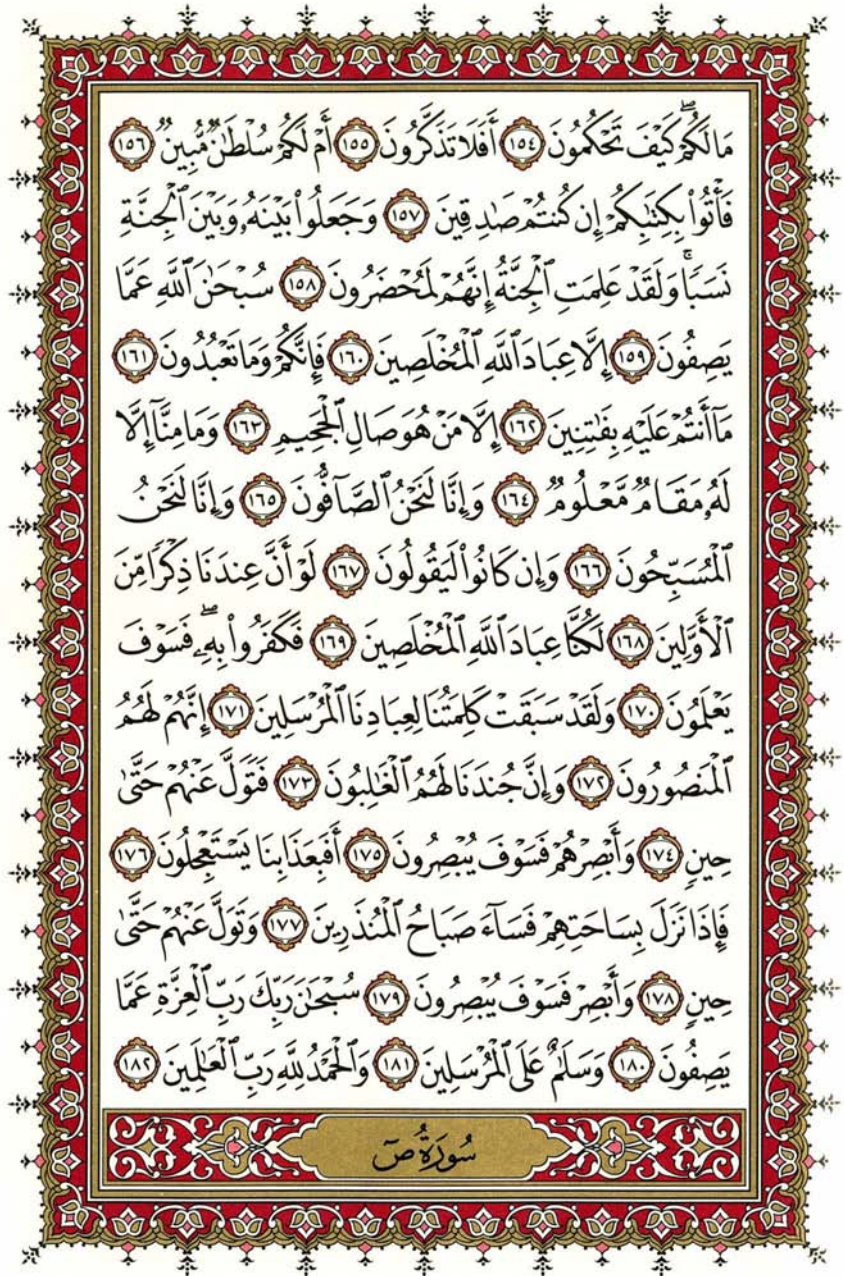 مَا لَكُمۡ كَيۡفَ تَحۡكُمُونَ ١٥٤ أَفَلَا تَذَكَّرُونَ ١٥٥ أَمۡ لَكُمۡ سُلۡطَٰنٞ مُّبِينٞ ١٥٦
فَأۡتُواْ بِكِتَٰبِكُمۡ إِن كُنتُمۡ صَٰدِقِينَ ١٥٧ وَجَعَلُواْ بَيۡنَهُۥ وَبَيۡنَ ٱلۡجِنَّةِ
نَسَبٗاۚ وَلَقَدۡ عَلِمَتِ ٱلۡجِنَّةُ إِنَّهُمۡ لَمُحۡضَرُونَ ١٥٨ سُبۡحَٰنَ ٱللَّهِ عَمَّا
يَصِفُونَ ١٥٩ إِلَّا عِبَادَ ٱللَّهِ ٱلۡمُخۡلَصِينَ ١٦٠ فَإِنَّكُمۡ وَمَا تَعۡبُدُونَ ١٦١
مَآ أَنتُمۡ عَلَيۡهِ بِفَٰتِنِينَ ١٦٢ إِلَّا مَنۡ هُوَ صَالِ ٱلۡجَحِيمِ ١٦٣ وَمَا مِنَّآ إِلَّا
لَهُۥ مَقَامٞ مَّعۡلُومٞ ١٦٤ وَإِنَّا لَنَحۡنُ ٱلصَّآفُّونَ ١٦٥ وَإِنَّا لَنَحۡنُ
ٱلۡمُسَبِّحُونَ ١٦٦ وَإِن كَانُواْ لَيَقُولُونَ ١٦٧ لَوۡ أَنَّ عِندَنَا ذِكۡرٗا مِّنَ
ٱلۡأَوَّلِينَ ١٦٨ لَكُنَّا عِبَادَ ٱللَّهِ ٱلۡمُخۡلَصِينَ ١٦٩ فَكَفَرُواْ بِهِۦۖ فَسَوۡفَ
يَعۡلَمُونَ ١٧٠ وَلَقَدۡ سَبَقَتۡ كَلِمَتُنَا لِعِبَادِنَا ٱلۡمُرۡسَلِينَ ١٧١ إِنَّهُمۡ لَهُمُ
ٱلۡمَنصُورُونَ ١٧٢ وَإِنَّ جُندَنَا لَهُمُ ٱلۡغَٰلِبُونَ ١٧٣ فَتَوَلَّ عَنۡهُمۡ حَتَّىٰ
حِينٖ ١٧٤ وَأَبۡصِرۡهُمۡ فَسَوۡفَ يُبۡصِرُونَ ١٧٥ أَفَبِعَذَابِنَا يَسۡتَعۡجِلُونَ ١٧٦
فَإِذَا نَزَلَ بِسَاحَتِهِمۡ فَسَآءَ صَبَاحُ ٱلۡمُنذَرِينَ ١٧٧ وَتَوَلَّ عَنۡهُمۡ حَتَّىٰ
حِينٖ ١٧٨ وَأَبۡصِرۡ فَسَوۡفَ يُبۡصِرُونَ ١٧٩ سُبۡحَٰنَ رَبِّكَ رَبِّ ٱلۡعِزَّةِ عَمَّا
يَصِفُونَ ١٨٠ وَسَلَٰمٌ عَلَى ٱلۡمُرۡسَلِينَ ١٨١ وَٱلۡحَمۡدُ لِلَّهِ رَبِّ ٱلۡعَٰلَمِينَ ١٨٢
سُورَةُ صٓ